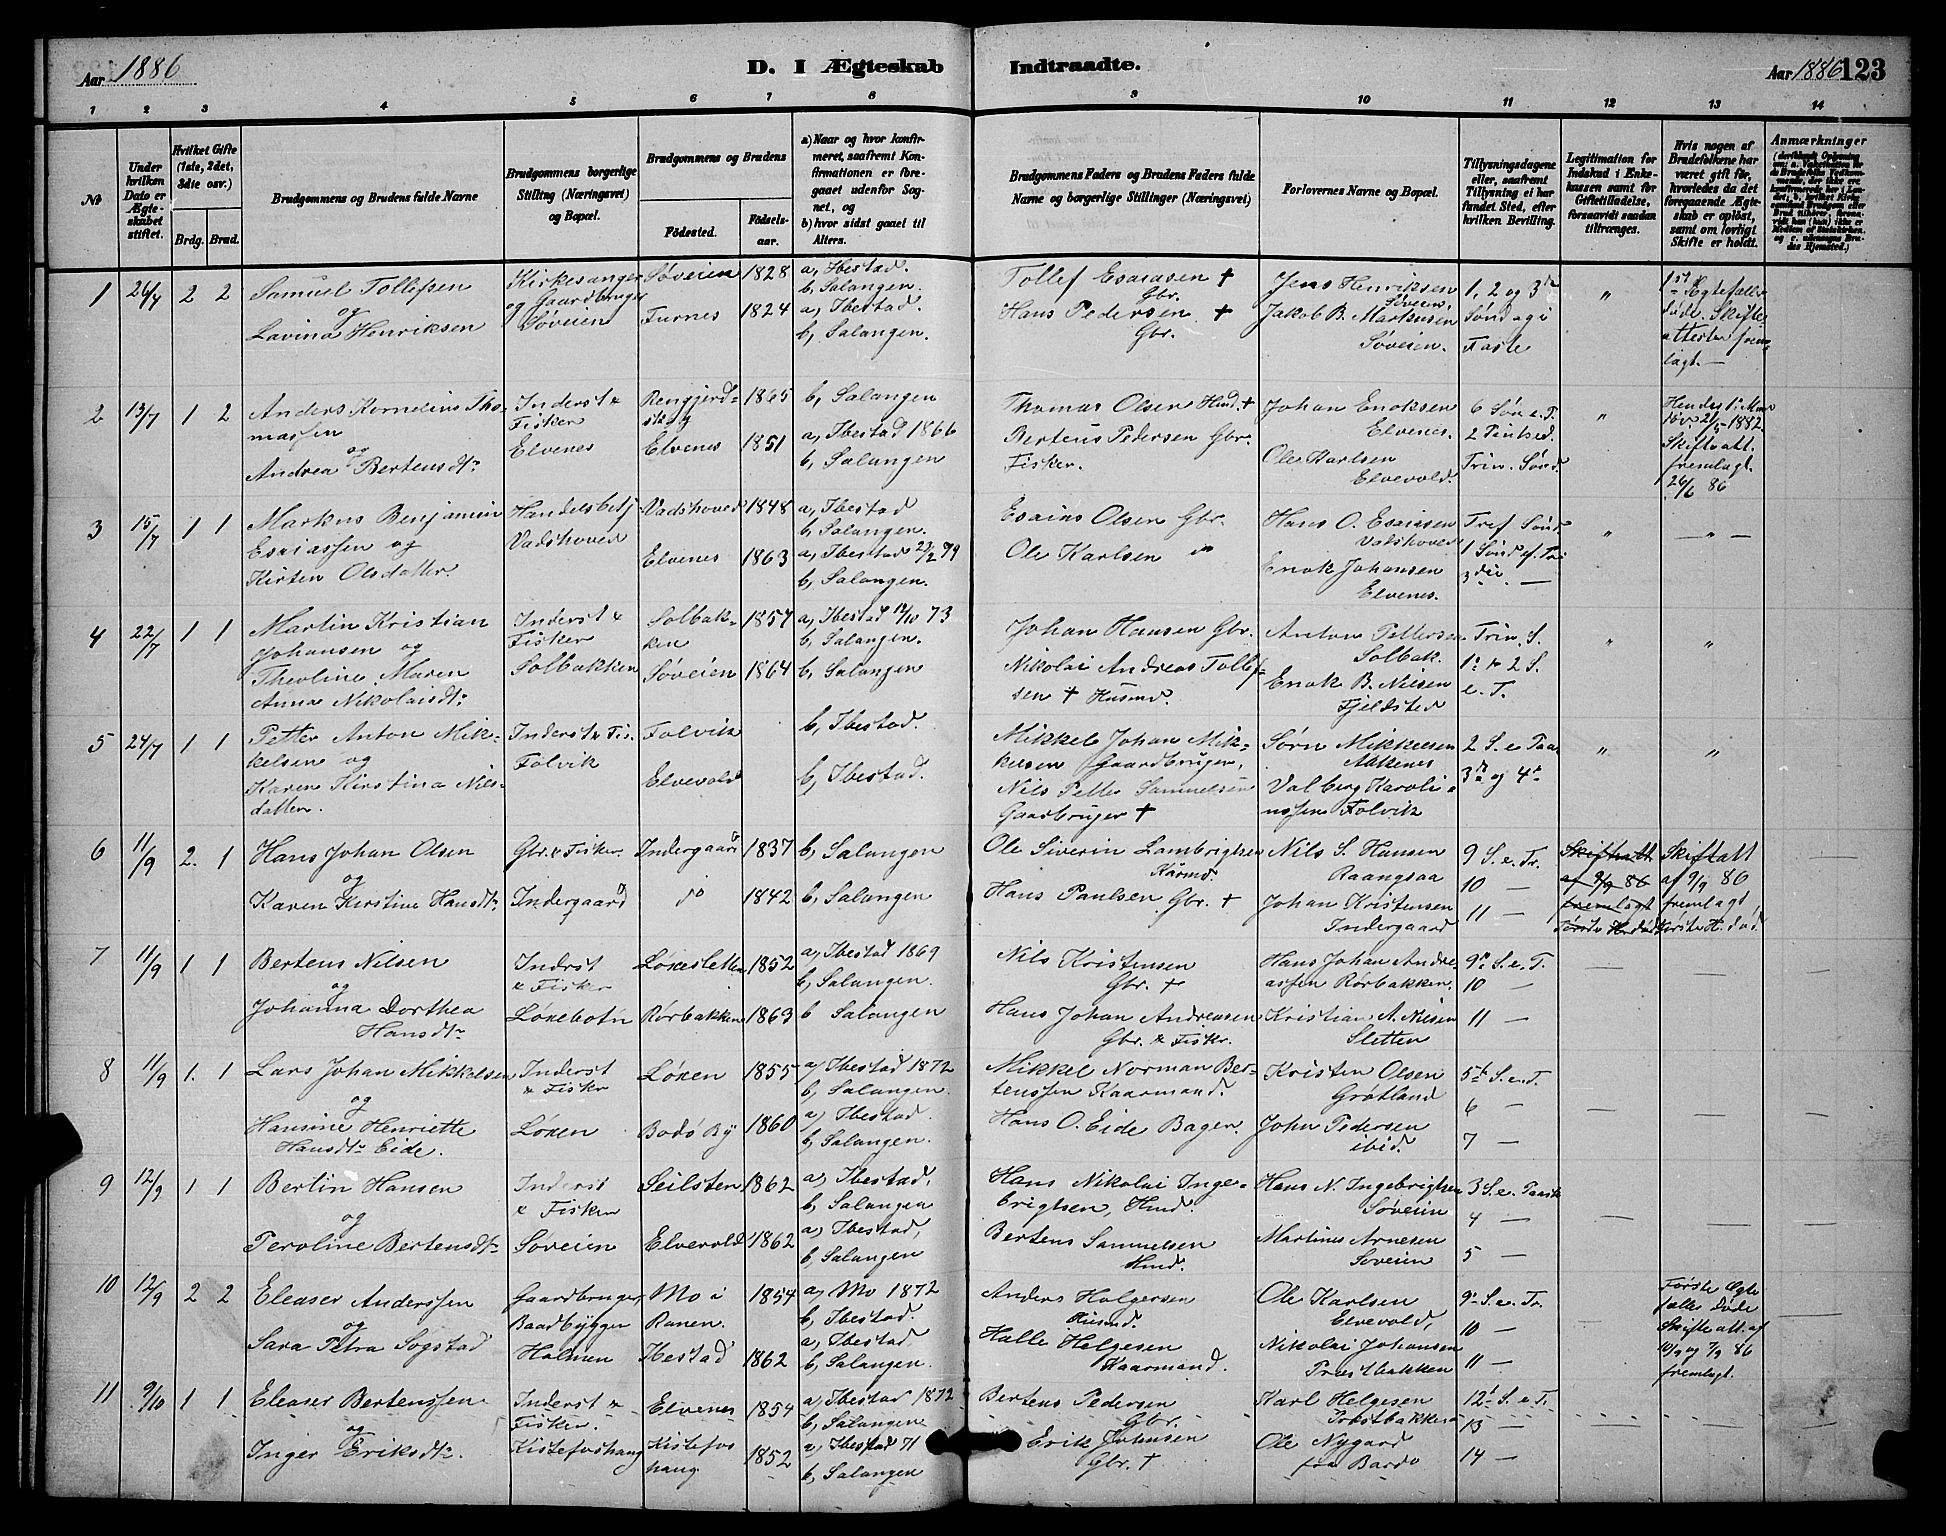 Aar 1886
D. I Ægteskab Indtraadte.
Aar 1886 123
1 2 3 4 5 6 7 8 9 10 11 12 13 14
No
Under hvilken Dato er Ægteskabet stiftet.
Hvilket Gifte (1ste, 2det, 3die osv.)
Brdg. Brud.
Brudgommens og Brudens fulde Navne
Brudgommens borgerlige Stilling (Næringsvei) og Bopæl.
Brudgommens og Brudens
Födested.
Födsels-aar.
a) Naar og hvor konfirmeret, saafremt Konfirmationen er foregaaet udenfor Sognet, og
b) hvor sidst gaaet til Alters.
Brudgommens Faders og Brudens Faders fulde Navne og borgerlige Stillinger (Næringsvei)
Forlovernes Navne og Bopæl.
Tillysningsdagene eller, saafremt Tillysning ei har fundet Sted, efter hvilken Bevilling.
Legitimation for Indskud i Enkekassen samt for Giftetilladelse, forsaavidt saadan tiltrænges.
Hvis nogen af Brudefolkene har været gift för, hvorledes da det foregaaende Ægteskab er oplöst, samt om lovligt Skifte er holdt.
Anmærkninger
1 26/4 2 2 Samuel Tollefsen
og
Lavina Henriksen
Kirkesanger
og Gaardbruger
Søveien
Søveien 1828
Furnes 1824
a, Ibestad.
b, Salangen.
a, Ibestad.
b, Salangen.
Tollef Esaiasen +
Gbr.
Hans Pedersen +
Gbr.
Jens Henriksen
Søveien.
Jakob B. Markusen
Søveien.
1, 2 og 3de
Søndag i
Faste
"
1ste Ægtefæller
døde. Skifte-
attester frem-
lagt. —
2 13/7 1 2 Anders Kornelius Tho-
massen
og
Andrea Bertensdtr
Inderst &
Fisker
Elvenes
Elvenes
1865
1851
b, Salangen
a, Ibestad 1866
b, Salangen
Thomas Olsen Hmd. +
Berteus Pedersen Gbr.
Fisker.
Johan Enoksen
Elvenes.
Ole Karlsen
Elvevold.
6 Søn e. P.
2 Pintsed.
Trin. Sønd.
"
Skifteatt.
fremlagt.
26/6 86
3 15/7 1 1 Markus Benjamin
Esaiassen og
Kirsten Olsdatter.
Handelsbetj
Vadshoved
Vadshoved 1848
Elvenes 1863
a, Ibestad
b, Salangen.
b, Salangen.
Esaias Olsen Gbr.
Ole Karlsen do
Hans O. Esaiasen
Vadshoved
Enok Johansen
Elvenes.
Tref Sønd
1 Sønd ef. Tri
3die —
"
— " —
4 22/7 1 1 Martin Kristian
Johansen og
Theoline Maren
Anna Nikolaisdtr
Inderst &
Fisker
Solbakken
Solbak-
ken 1857
Søveien 1864
a, Ibestad 12/10 73
b, Salangen.
b, Salangen
Johan Hansen Gbr.
Nikolai Andreas Tollef-
sen + Husmd.
Anton Pettersen
Solbak.
Enok B. Nilsen
Fjeldsted
Trin. S.
1. & 2 S.
e. T.
" "
5 24/7 1 1 Petter Anton Mik-
kelsen og
Karen Kirstina Nils-
datter.
Inderst & Fis.
Folvik
Folvik
Elvevold
b, Ibestad.
b, Ibestad.
Mikkel Johan Mik-
kelsen Gaardbruger,
Nils Petter Samuelsen
Gaardbruger +
Sørn Mikkelsen
Aakenes
Valberg Karoli-
ussen Folvik
2 S. e Paas
3de og 4de
" "
6 11/9 2. 1 Hans Johan Olsen
og
Karen Kirstine Hansdtr
Gbr. & Fisker.
Indergaard
Indergaard 1837
do 1842
b, Salangen
b, Salangen
Ole Siverin Lambrigtsen
Kårmd.
Hans Paulsen Gbr. +
Nils S. Hansen
Raangsaa
Johan Kristensen
Indergaard
9 S. e. Tr.
10 —
11 —
Skifteatt.
af 9/9 86
fremlagt
Første H. død
Skifteatt
af 9/9 86
fremlagt
Første H. død.
—
7 11/9 1 1 Bertens Nilsen
og
Johanna Dorthea
Hansdtr
Inderst
& Fisker
Løksebotn
Løkesletten 1852
Rørbakken 1863
a, Ibestad 1869
b, Salangen.
b Salangen
Nils Kristensen
Gbr. +
Hans Johan Andreasen
Gbr. & Fiskr.
Hans Johan Andre-
assen Rørbakken.
Kristian A. Nilsen
Sletten
9de S. e. T.
10 —
11 —
8 11/9 1. 1 Lars Johan Mikkelsen
og
Hansine Henriette
Hansdtr Eide.
Inderst
& Fiskr
Løxen
Løxen 1855
Bodø By 1860
a, Ibestad 1872
b, Salangen.
a, Ibestad.
b, Salangen.
Mikkel Norman Ber-
tenssen Kaarmand.
Hans O. Eide Bager.
Kristen Olsen
Grøtland
John Pedersen
ibid.
5te S. e. T.
6 —
7 —
9 12/9 1 1 Bertin Hansen
og
Peroline Bertensdtr
Inderst
& Fisker
Søveien
Seilsten 1862
Elvevold 1862
a, Ibestad,
b, Salangen
a, Ibestad,
b, Salangen
Hans Nikolai Inge-
brigtsen, Hmd.
Bertens Samuelsen
Hmd.
Hans N. Ingebrigtsen
Søveien
Martines Arnesen
Søveien
3 S. e. Paaske
4 —
5 —
10 12/9 2 2 Eleaser Anderssen
og
Sara Petra Sogstad
Gaardbruger,
Baadbygger
Holmen
Mo i
Ranen. 1854
Ibestad 1862
a, Mo 1872
b, Ibestad.
a, Ibestad,
b, Salangen.
Anders Holgersen
Husmd.
Halle Helgesen
Kaarmand.
Ole Karlsen
Elvevold,
Nikolai Johansen
Præstbakken
9de S. e. Tr.
10 —
11 —
Første Ægte
fælle døde
Skifte att. af
10/9 og 7/9 86
fremlagt.
11 9/10 1 1 Eleaser Bertenssen
og
Inger Eriksdtr
Inderst &
Fisker.
Kistefoshaug
Elvenes 1854
Kistefos
haug 1852
a, Ibestad 1872
b, Salangen
a, Ibestad 71
b, Salangen
Bertens Pedersen
Gbr.
Erik Johnsen
Gbr. +
Karl Helgesen
Ole Nygaard
fra Bardo
12te S. e. T.
13 —
14 —